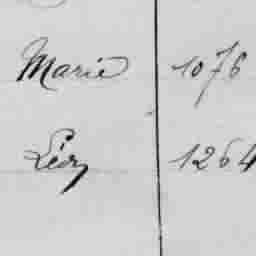 Marie 1076
Léon 1264